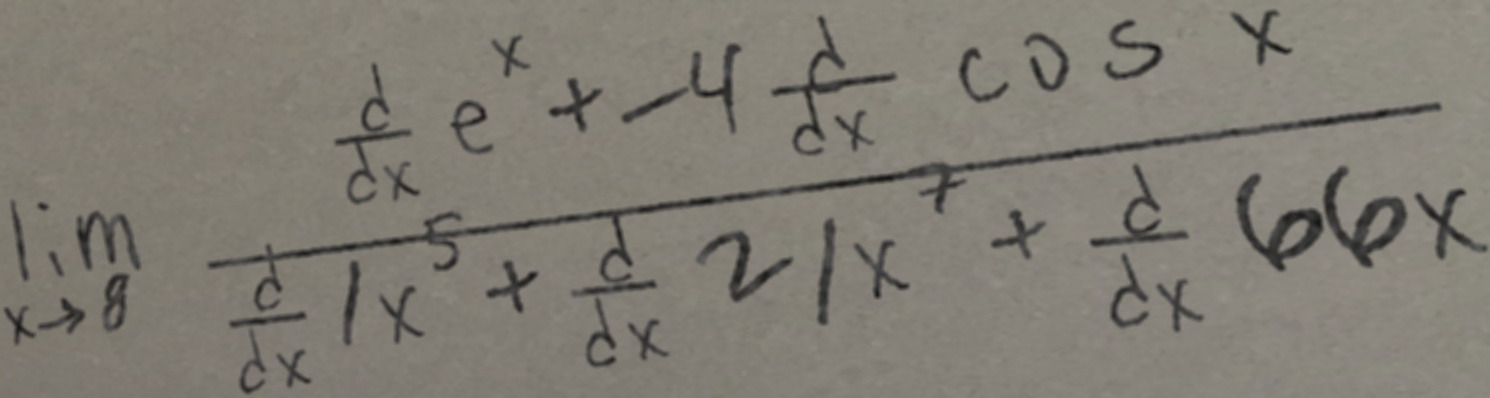 \lim_{x \to 8} \frac{\frac{d}{dx} e^{x} + -4 \frac{d}{dx} \cos x}{\frac{d}{dx} 1x^{5} + \frac{d}{dx} 21x^{7} + \frac{d}{dx} 66x}